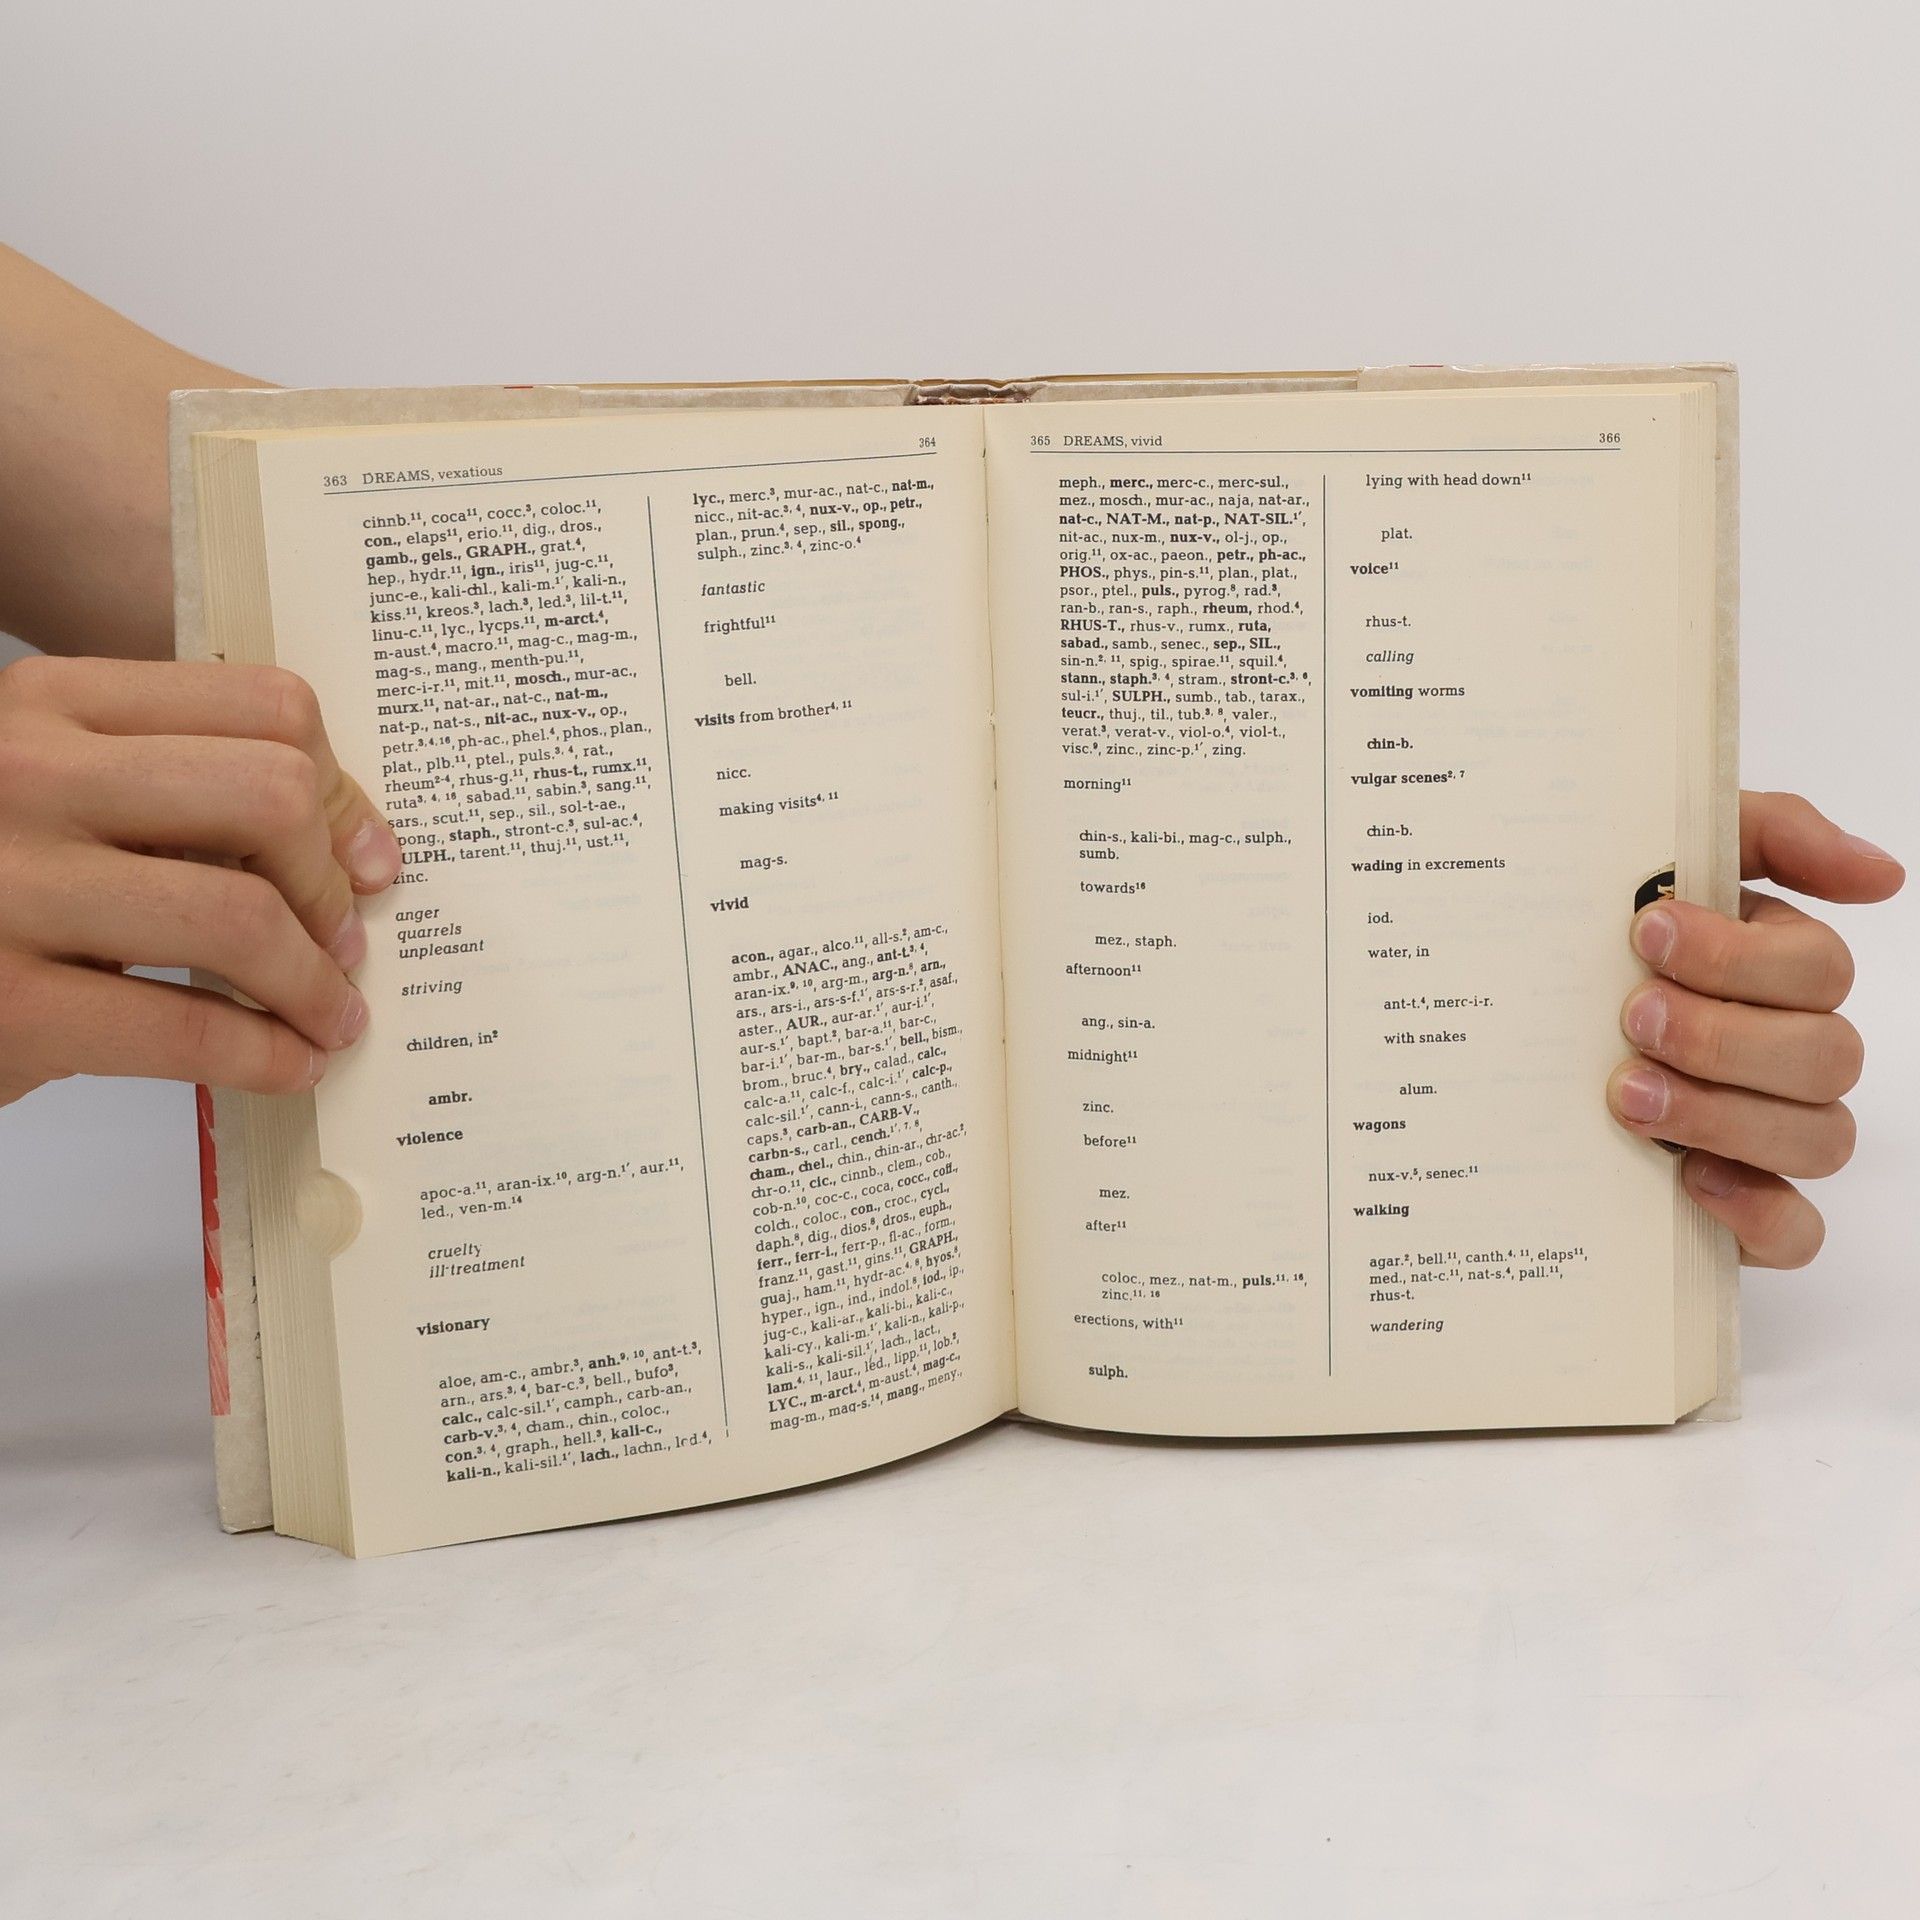 363 DREAMS, vexatious
364
cinnb.¹¹, coca¹¹, cocc.³, coloc.¹¹,
con., elaps¹¹, erio.¹¹, dig., dros.,
gamb., gels., GRAPH., grat.⁴,
hep., hydr.¹¹, ign., iris¹¹, jug-c.¹¹,
junc-e., kali-chl., kali-m.¹′, kali-n.,
kiss.¹¹, kreos.³, lach.³, led.³, lil-t.¹¹,
linu-c.¹¹, lyc., lycps.¹¹, m-arct.⁴,
m-aust.⁴, macro.¹¹, mag-c., mag-m.,
mag-s., mang., menth-pu.¹¹,
merc-i-r.¹¹, mit.¹¹, mosch., mur-ac.,
murx.¹¹, nat-ar., nat-c., nat-m.,
nat-p., nat-s., nit-ac., nux-v., op.,
petr.³,⁴,¹⁶, ph-ac., phel.⁴, phos., plan.,
plat., plb.¹¹, ptel., puls.³, ⁴, rat.,
rheum²⁻⁴, rhus-g.¹¹, rhus-t., rumx.¹¹,
ruta³, ⁴, ¹⁶, sabad.¹¹, sabin.³, sang.¹¹,
sars., scut.¹¹, sep., sil., sol-t-ae.,
pong., staph., stront-c.³, sul-ac.⁴,
ULPH., tarent.¹¹, thuj.¹¹, ust.¹¹,
zinc.
anger
quarrels
unpleasant
striving
children, in²
ambr.
violence
apoc-a.¹¹, aran-ix.¹⁰, arg-n.¹′, aur.¹¹,
led., ven-m.¹⁴
cruelty
ill-treatment
visionary
aloe, am-c., ambr.³, anh.⁹, ¹⁰, ant-t.³,
arn., ars.³, ⁴, bar-c.³, bell., bufo³,
calc., calc-sil.¹′, camph., carb-an.,
carb-v.³, ⁴, cham., chin., coloc.,
con.³, ⁴, graph., hell.³, kali-c.,
kali-n., kali-sil.¹′, lach., lachn., led.⁴,
lyc., merc.³, mur-ac., nat-c., nat-m.,
nicc., nit-ac.³, ⁴, nux-v., op., petr.,
plan., prun.⁴, sep., sil., spong.,
sulph., zinc.³, ⁴, zinc-o.⁴
fantastic
frightful¹¹
bell.
visits from brother⁴, ¹¹
nicc.
making visits⁴, ¹¹
mag-s.
vivid
acon., agar., alco.¹¹, all-s.², am-c.,
ambr., ANAC., ang., ant-t.³, ⁴,
aran-ix.⁹, ¹⁰, arg-m., arg-n.⁸, arn.,
ars., ars-i., ars-s-f.¹′, ars-s-r.², asaf.,
aster., AUR., aur-ar.¹′, aur-i.¹′,
aur-s.¹′, bapt.², bar-a.¹¹, bar-c.,
bar-i.¹′, bar-m., bar-s.¹′, bell., bism.,
brom., bruc.⁴, bry., calad., calc.,
calc-a.¹¹, calc-f., calc-i.¹′, calc-p.,
calc-sil.¹′, cann-i., cann-s., canth.,
caps.³, carb-an., CARB-V.,
carbn-s., carl., cench.¹′, ⁷, ⁸,
cham., chel., chin., chin-ar., chr-ac.²,
chr-o.¹¹, cic., cinnb., clem., cob.,
cob-n.¹⁰, coc-c., coca, cocc., coff.,
colch., coloc., con., croc., cycl.,
daph.⁸, dig., dios.⁸, dros., euph.,
ferr., ferr-i., ferr-p., fl-ac., form.,
franz.¹¹, gast.¹¹, gins.¹¹, GRAPH.,
guaj., ham.¹¹, hydr-ac.⁴, ⁸, hyos.⁸,
hyper., ign., ind., indol.⁸, iod., ip.,
jug-c., kali-ar., kali-bi., kali-c.,
kali-cy., kali-m.¹′, kali-n., kali-p.,
kali-s., kali-sil.¹′, lach., lact.,
lam.⁴, ¹¹, laur., led., lipp.¹¹, lob.²,
LYC., m-arct.⁴, m-aust.⁴, mag-c.,
mag-m., mag-s.¹⁴, mang., meny.,
365 DREAMS, vivid
366
meph., merc., merc-c., merc-sul.,
mez., mosch., mur-ac., naja, nat-ar.,
nat-c., NAT-M., nat-p., NAT-SIL.¹′,
nit-ac., nux-m., nux-v., ol-j., op.,
orig.¹¹, ox-ac., paeon., petr., ph-ac.,
PHOS., phys., pin-s.¹¹, plan., plat.,
psor., ptel., puls., pyrog.⁸, rad.³,
ran-b., ran-s., raph., rheum, rhod.⁴,
RHUS-T., rhus-v., rumx., ruta,
sabad., samb., senec., sep., SIL.,
sin-n.², ¹¹, spig., spirae.¹¹, squil.⁴,
stann., staph.³, ⁴, stram., stront-c.³, ⁶,
sul-i.¹′, SULPH., sumb., tab., tarax.,
teucr., thuj., til., tub.³, ⁸, valer.,
verat.³, verat-v., viol-o.⁴, viol-t.,
visc.⁹, zinc., zinc-p.¹′, zing.
morning¹¹
chin-s., kali-bi., mag-c., sulph.,
sumb.
towards¹⁶
mez., staph.
afternoon¹¹
ang., sin-a.
midnight¹¹
zinc.
before¹¹
mez.
after¹¹
coloc., mez., nat-m., puls.¹¹, ¹⁶,
zinc.¹¹, ¹⁶
erections, with¹¹
sulph.
lying with head down¹¹
plat.
voice¹¹
rhus-t.
calling
vomiting worms
chin-b.
vulgar scenes², ⁷
chin-b.
wading in excrements
iod.
water, in
ant-t.⁴, merc-i-r.
with snakes
alum.
wagons
nux-v.⁵, senec.¹¹
walking
agar.², bell.¹¹, canth.⁴, ¹¹, elaps¹¹,
med., nat-c.¹¹, nat-s.⁴, pall.¹¹,
rhus-t.
wandering